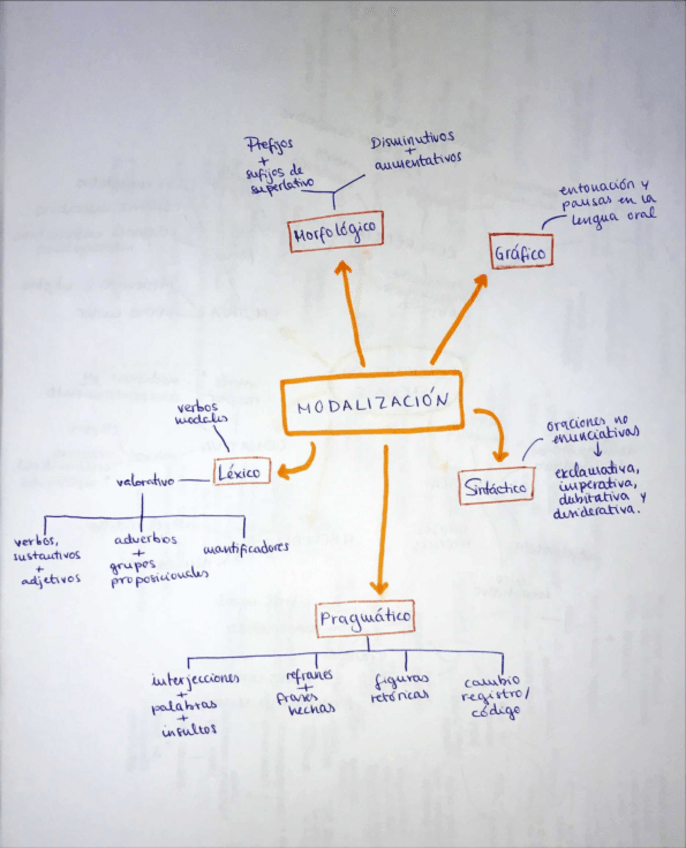 Prefijos
+
sufijos de
superlativo
Disminutivos
+
aumentativos
Morfológico
entonación y
pausas en la
lengua oral
Gráfico
MODALIZACIÓN
verbos
modales
Léxico
valorativo
verbos,
sustantivos
+
adjetivos
adverbios
+
grupos
proposicionales
cuantificadores
oraciones no
enunciativas
Sintáctico
exclamativa,
imperativa,
dubitativa y
desiderativa.
Pragmático
interjecciones
+
palabras
+
insultos
refranes
+
frases
hechas
figuras
retóricas
cambio
registro/
código